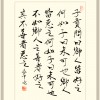 子貢問曰鄉人皆好之
何如子曰未可也鄉人
皆惡之何如子曰未可
也不如鄉人之善者好之
其不善者惡之